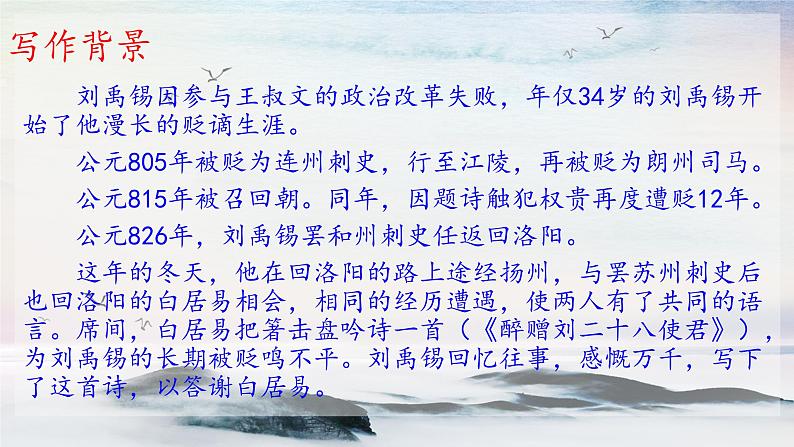 写作背景
刘禹锡因参与王叔文的政治改革失败，年仅34岁的刘禹锡开
始了他漫长的贬谪生涯。
公元805年被贬为连州刺史，行至江陵，再被贬为朗州司马。
公元815年被召回朝。同年，因题诗触犯权贵再度遭贬12年。
公元826年，刘禹锡罢和州刺史任返回洛阳。
这年的冬天，他在回洛阳的路上途经扬州，与罢苏州刺史后
也回洛阳的白居易相会，相同的经历遭遇，使两人有了共同的语
言。席间，白居易把箸击盘吟诗一首（《醉赠刘二十八使君》），
为刘禹锡的长期被贬鸣不平。刘禹锡回忆往事，感慨万千，写下
了这首诗，以答谢白居易。